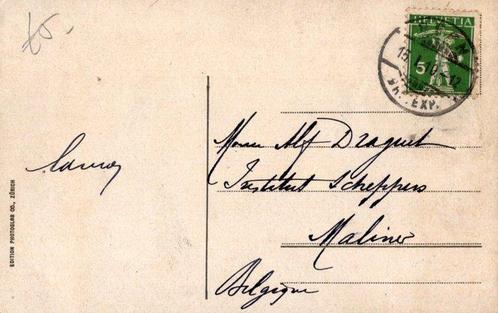 HELVETIA
5
EXP.
Alf Draguet
Institut Scheppers
Malines
Belgique
EDITION PHOTOGLOB CO., ZÜRICH